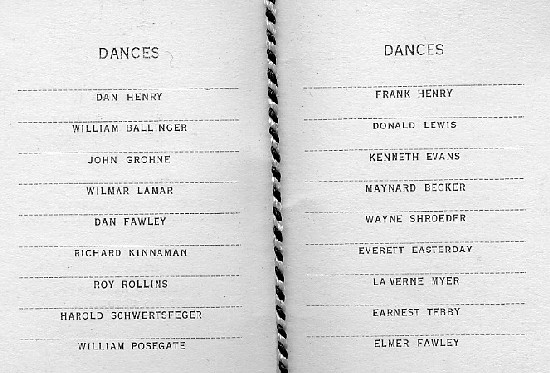 DANCES
DAN HENRY
WILLIAM BALLINGER
JOHN GROHNE
WILMAR LAMAR
DAN FAWLEY
RICHARD KINNAMAN
ROY ROLLINS
HAROLD SCHWERTSFEGER
WILLIAM POSEGATE
DANCES
FRANK HENRY
DONALD LEWIS
KENNETH EVANS
MAYNARD BECKER
WAYNE SHROEDER
EVERETT EASTERDAY
LAVERNE MYER
EARNEST TERRY
ELMER FAWLEY